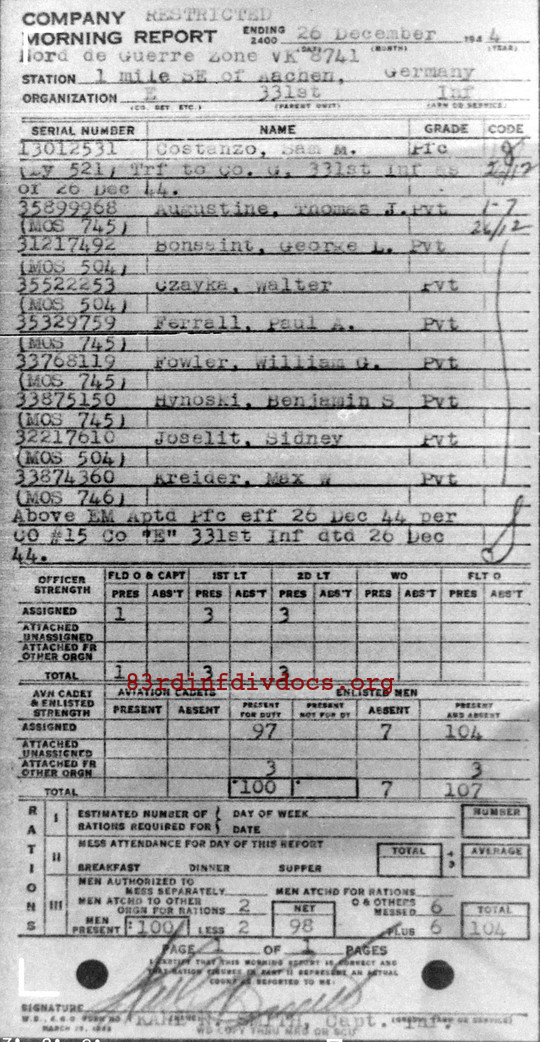 COMPANY RESTRICTED
MORNING REPORT ENDING 2400 26 December 1944
(DAY) (MONTH) (YEAR)
Nord de Guerre Zone VK 8741
STATION 1 mile SE of Aachen, Germany
ORGANIZATION E 331st Inf
(CO. DET. ETC.) (PARENT UNIT) (ARM OR SERVICE)
SERIAL NUMBER NAME GRADE CODE
13012531 Costanzo, Sam M. Pfc
(Dy 521) Trf to Co. G, 331st Inf as
of 26 Dec 44.
35899968 Augustine, Thomas J. Pvt 1-7
(MOS 745) 26/12
31217492 Bonsaint, George L. Pvt
(MOS 504)
35522253 Czayka, Walter Pvt
(MOS 504)
35329759 Ferrall, Paul A. Pvt
(MOS 745)
33768119 Fowler, William G. Pvt
(MOS 745)
33875150 Hynoski, Benjamin S Pvt
(MOS 745)
32217610 Joselit, Sidney Pvt
(MOS 504)
33874360 Kreider, Max W Pvt
(MOS 746)
Above EM Aptd Pfc eff 26 Dec 44 per
CO #15 Co "E" 331st Inf dtd 26 Dec
44.
OFFICER STRENGTH FLD O & CAPT 1ST LT 2D LT WO FLT O
PRES ABS'T PRES ABS'T PRES ABS'T PRES ABS'T PRES ABS'T
ASSIGNED 1 3 3
ATTACHED UNASSIGNED
ATTACHED FR OTHER ORGN
TOTAL 1 3 3
83rdinfdivdocs.org
AVN CADET & ENLISTED STRENGTH AVIATION CADETS ENLISTED MEN
PRESENT ABSENT PRESENT FOR DUTY PRESENT NOT FOR DY ABSENT PRESENT AND ABSENT
ASSIGNED 97 7 104
ATTACHED UNASSIGNED
ATTACHED FR OTHER ORGN 3 3
TOTAL 100 7 107
RATIONS
I ESTIMATED NUMBER OF RATIONS REQUIRED FOR { DAY OF WEEK DATE NUMBER
II MESS ATTENDANCE FOR DAY OF THIS REPORT TOTAL ÷ 3 AVERAGE
BREAKFAST DINNER SUPPER
III MEN AUTHORIZED TO MESS SEPARATELY MEN ATCHD FOR RATIONS
MEN ATCHD TO OTHER ORGN FOR RATIONS 2 NET O & OTHERS MESSED 6 TOTAL
MEN PRESENT 100 LESS 2 98 PLUS 6 104
PAGE 1 OF 1 PAGES
I CERTIFY THAT THIS MORNING REPORT IS CORRECT AND
THAT RATION FIGURES IN PART II REPRESENT AN ACTUAL
COUNT AS REPORTED TO ME:
SIGNATURE
SMITH, Capt. Inf.
W.D., A.G.O. FORM NO. 1 (GRADE) (ARM OR SERVICE)